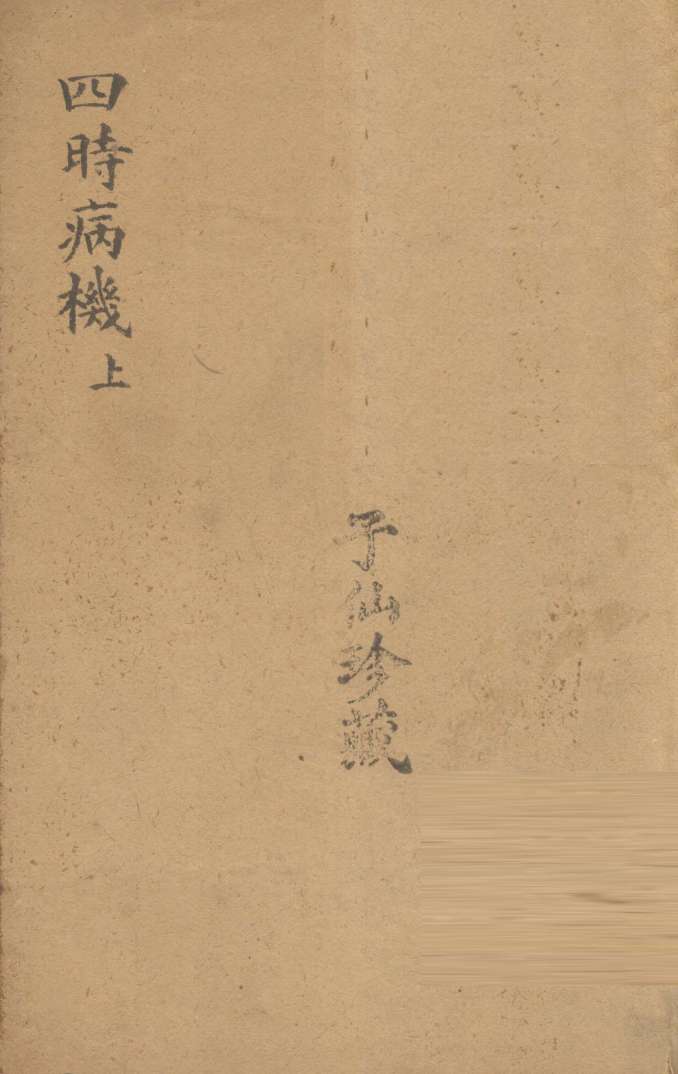 子仙珍藏
四時病機 上